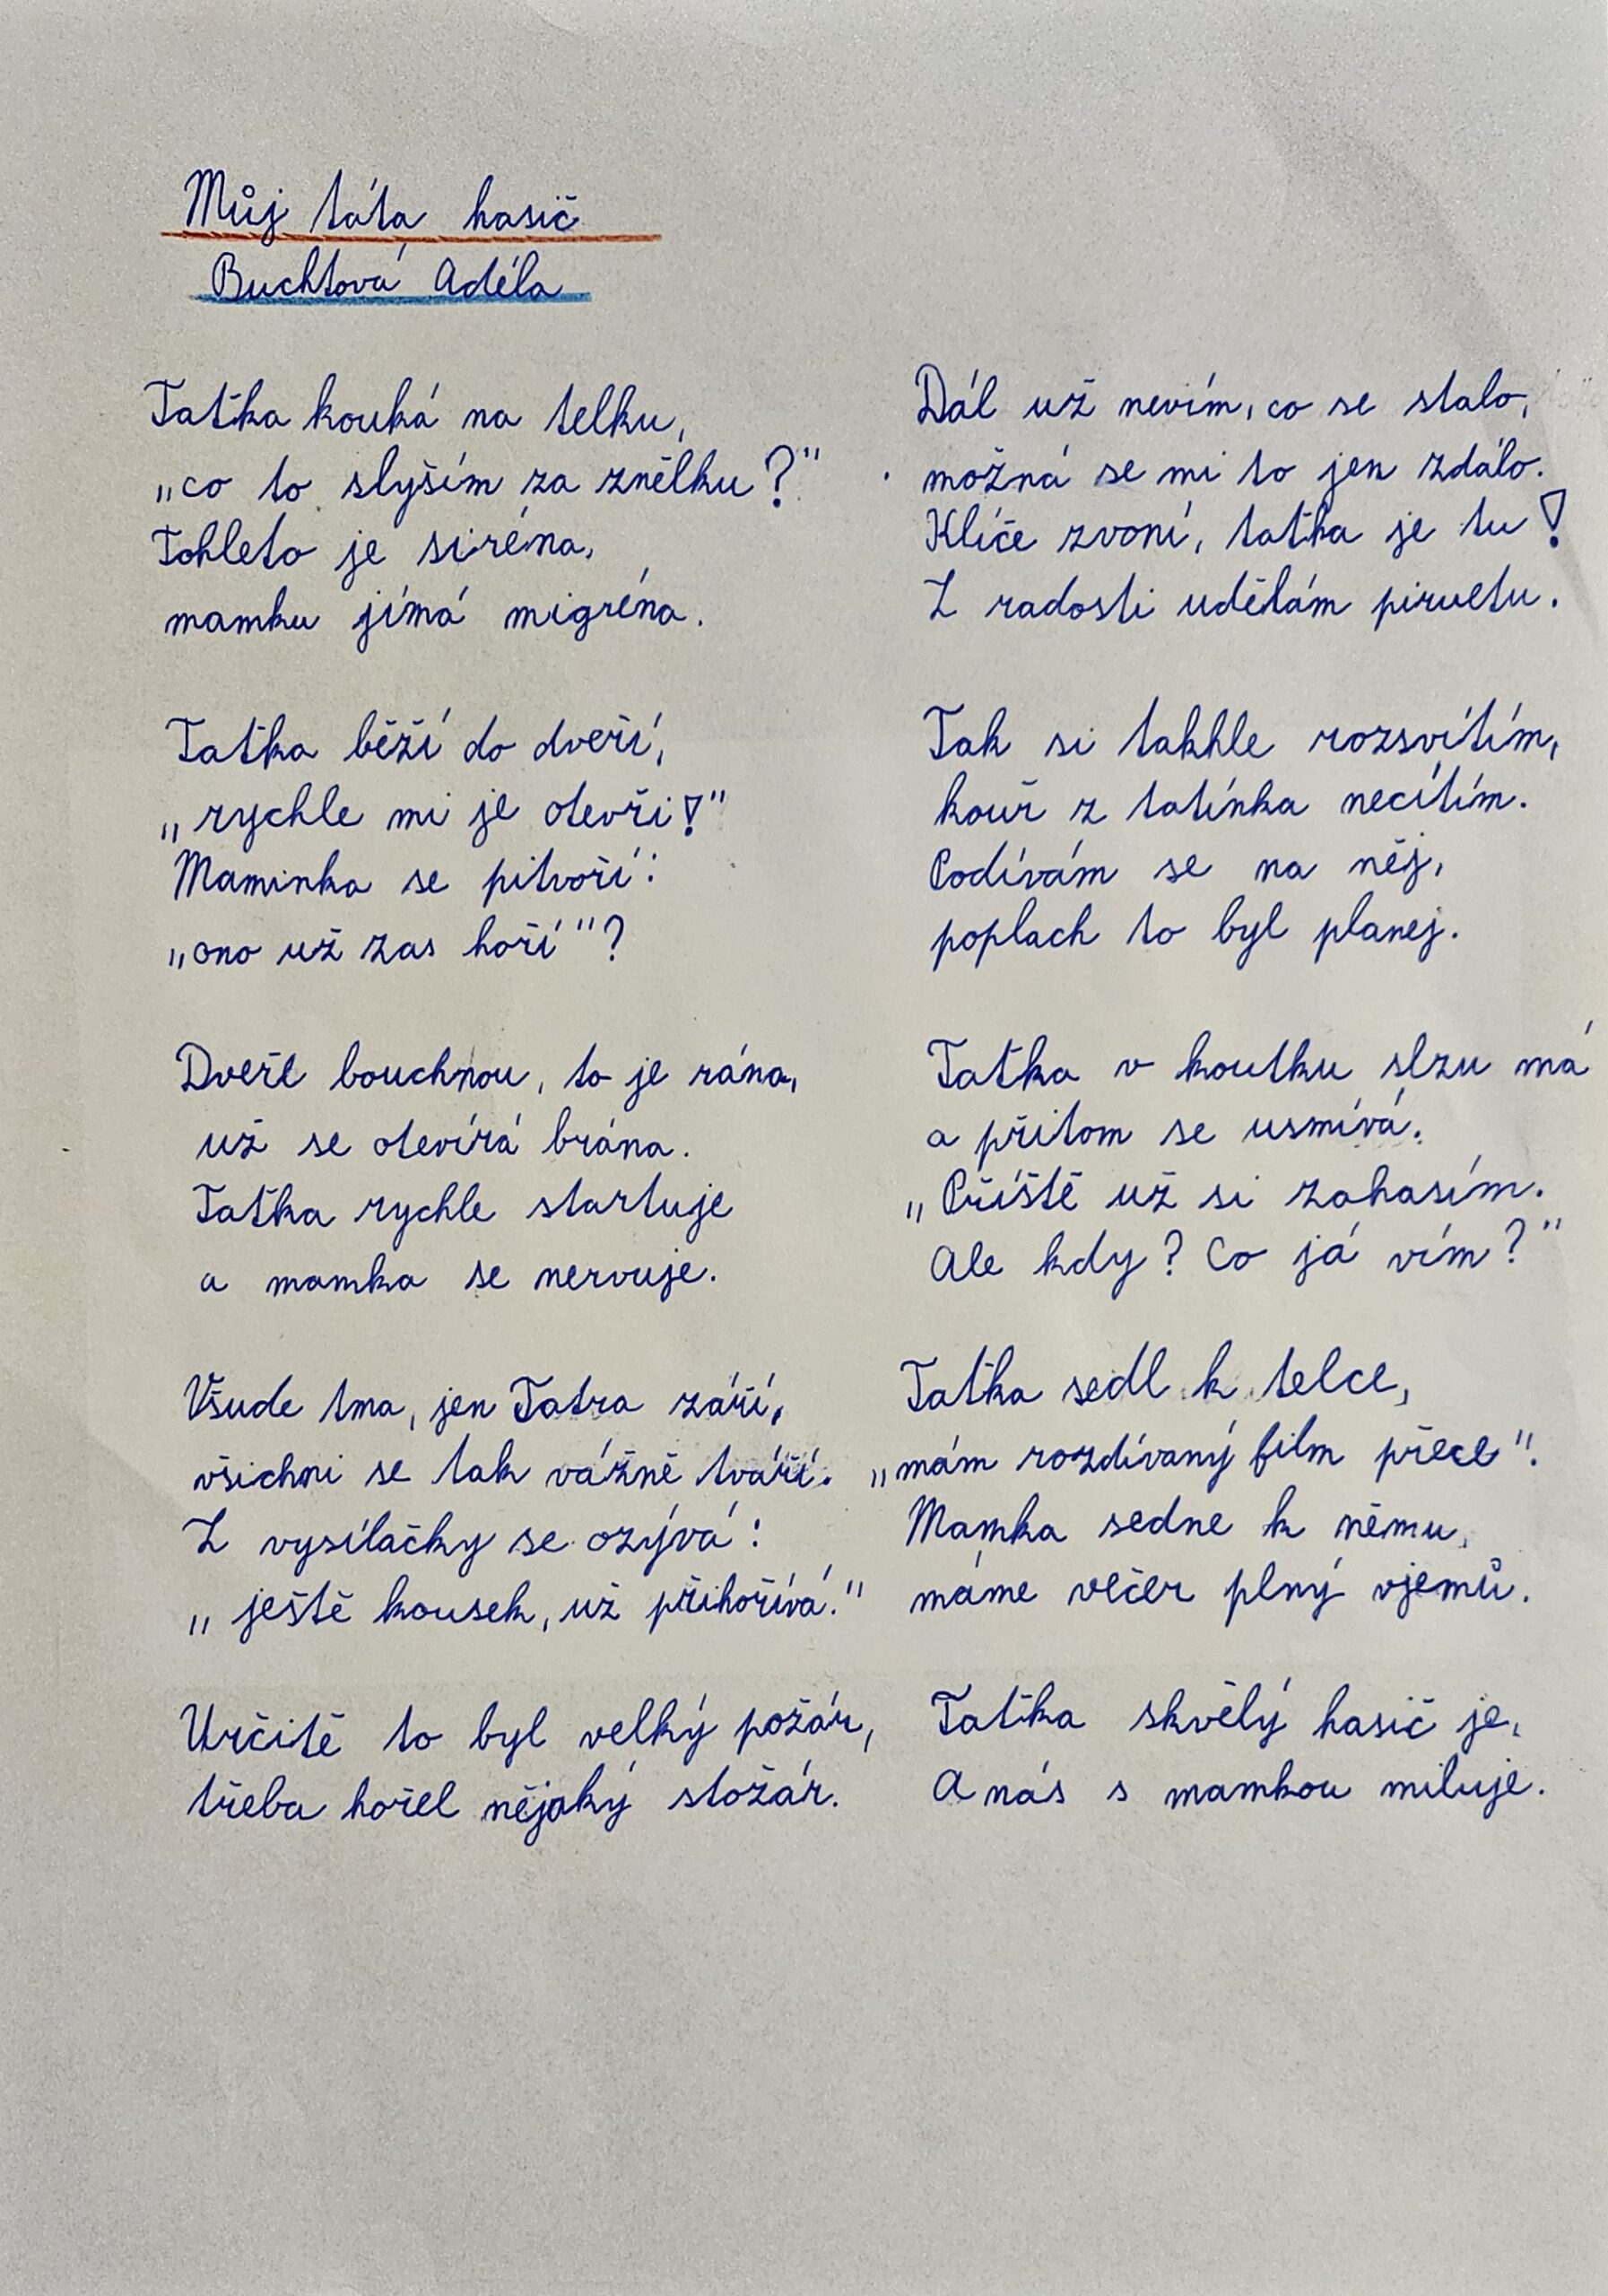 Můj táta hasič
Buchtová Adéla
Taťka kouká na telku,
„co to slyším za znělku?"
Tohleto je siréna,
mamku jímá migréna.
Taťka běží do dveří,
„rychle mi je otevři!"
Maminka se pitvoří:
„ono už zas hoří"?
Dveře bouchnou, to je rána,
už se otevírá brána.
Taťka rychle startuje
a mamka se nervuje.
Všude tma, jen Tatra září,
všichni se tak vážně tváří.
Z vysílačky se ozývá:
„ještě kousek, už přihořívá."
Určitě to byl velký požár,
třeba hořel nějaký stožár.
Dál už nevím, co se stalo,
možná se mi to jen zdálo.
Klíče zvoní, taťka je tu!
Z radosti udělám piruetu.
Tak si takhle rozsvítím,
kouř z tatínka necítím.
Podívám se na něj,
poplach to byl planej.
Taťka v koutku slzu má
a přitom se usmívá.
„Příště už si zahasím.
Ale kdy? Co já vím?"
Taťka sedl k telce,
„mám rozdívaný film přece".
Mamka sedne k němu,
máme večer plný vjemů.
Taťka skvělý hasič je,
A nás s mamkou miluje.